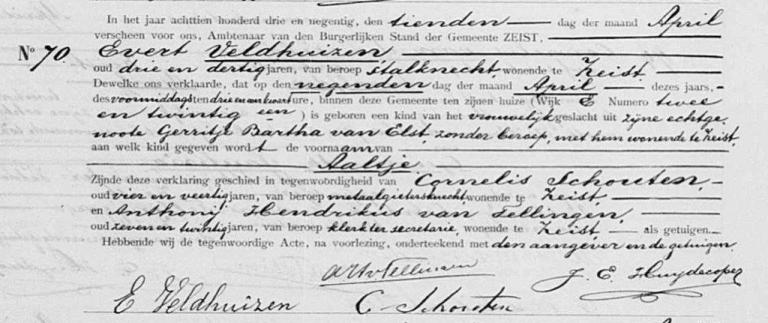 In het jaar achttien honderd drie en negentig, den tienden dag der maand April
verscheen voor ons, Ambtenaar van den Burgerlijken Stand der Gemeente ZEIST,
No 70. Evert Veldhuizen
oud drie en dertig jaren, van beroep stalknecht, wonende te Zeist
Dewelke ons verklaarde, dat op den negenden dag der maand April dezes jaars,
des voormiddags ten drie en een kwart ure, binnen deze Gemeente ten zijnen huize (Wijk E Numero twee
en twintig een) is geboren een kind van het vrouwelijk geslacht uit zijne echtge-
noote Gerritje Bartha van Elst, zonder beroep, met hem wonende te Zeist,
aan welk kind gegeven wordt de voornaam van
Aaltje
Zijnde deze verklaring geschied in tegenwoordigheid van Cornelis Schouten,
oud vier en veertig jaren, van beroep metaalgietersknecht wonende te Zeist
en Anthonij Hendrikus van Tellingen,
oud zeven en twintig jaren, van beroep klerk ter secretarie, wonende te Zeist als getuigen.
Hebbende wij de tegenwoordige Acte, na voorlezing, onderteekend met den aangever en de getuigen.
J. E. Huydecoper
E Veldhuizen C. Schouten